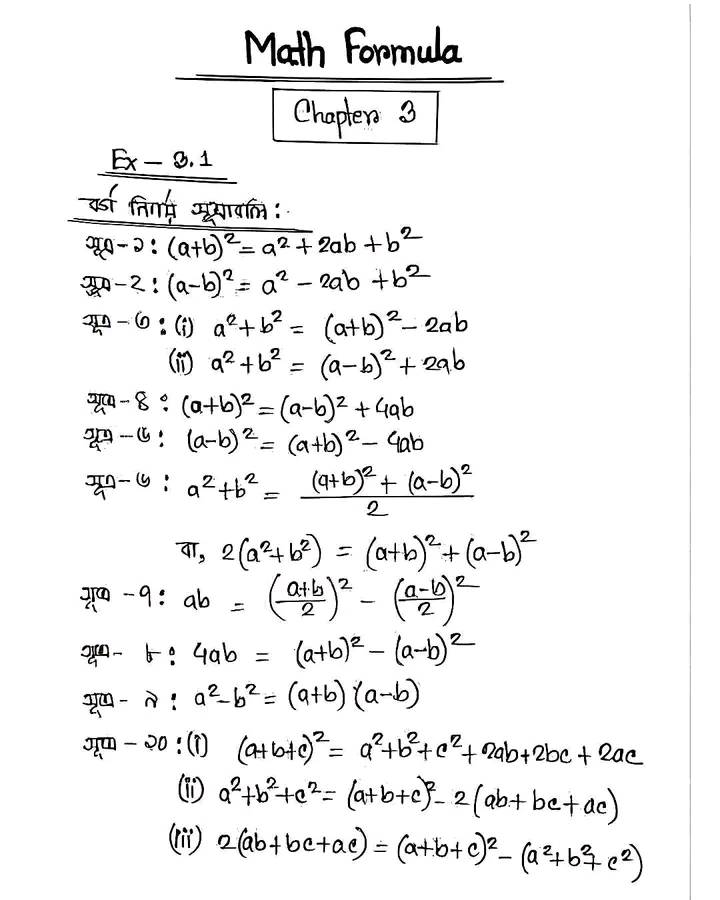 Math Formula
Chapter 3
Ex – 3.1
বর্গ নির্ণয় সূত্রাবলি:
সূত্র-১: (a+b)² = a² + 2ab + b²
সূত্র-2: (a-b)² = a² - 2ab + b²
সূত্র-৩: (i) a² + b² = (a+b)² - 2ab
(ii) a² + b² = (a-b)² + 2ab
সূত্র-৪: (a+b)² = (a-b)² + 4ab
সূত্র-৫: (a-b)² = (a+b)² - 4ab
সূত্র-৬: a² + b² = \frac{(a+b)² + (a-b)²}{2}
বা, 2(a² + b²) = (a+b)² + (a-b)²
সূত্র-৭: ab = (\frac{a+b}{2})² - (\frac{a-b}{2})²
সূত্র-৮: 4ab = (a+b)² - (a-b)²
সূত্র-৯: a² - b² = (a+b)(a-b)
সূত্র-১০: (i) (a+b+c)² = a² + b² + c² + 2ab + 2bc + 2ac
(ii) a² + b² + c² = (a+b+c)² - 2(ab + bc + ac)
(iii) 2(ab + bc + ac) = (a+b+c)² - (a² + b² + c²)